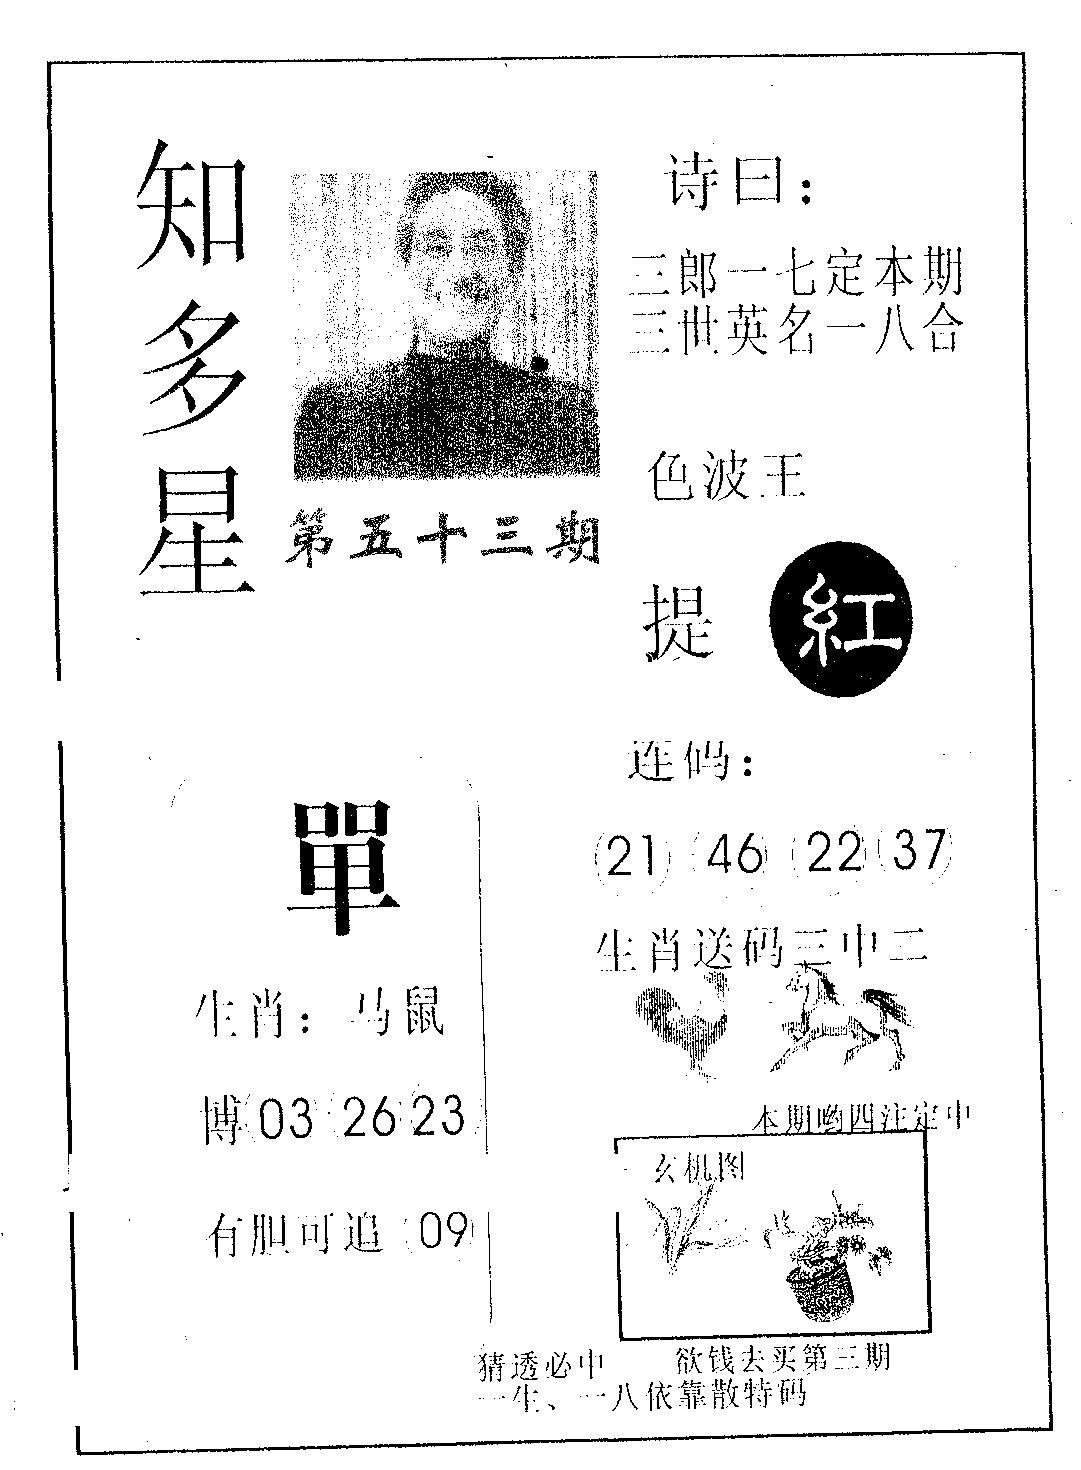 知多星
第五十三期
诗曰：
三郎一七定本期
三世英名一八合
色波王
提 紅
連码：
21 46 22 37
生肖送码三中二
單
生肖：马鼠
博 03 26 23
有胆可追 09
本期哟四注定中
玄机图
猜透必中 欲钱去买第三期
一生、一八依靠散特码